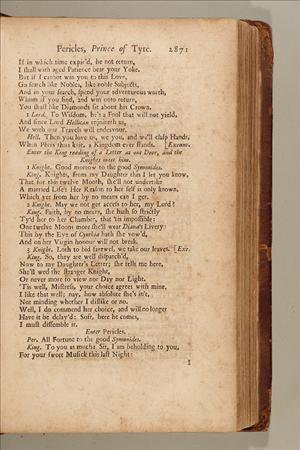 Pericles, Prince of Tyre. 2871
If in which time expir'd, he not return,
I shall with aged Patience bear your Yoke.
But if I cannot win you to this Love,
Go search like Nobles, like noble Subjects,
And in your search, spend your adventurous worth,
Whom if you find, and win unto return,
You shall like Diamonds sit about his Crown.
1 Lord. To Wisdom, he's a Fool that will not yield,
And since Lord Hellican enjoineth us,
We with our Travels will endeavour.
Hell. Then you love us, we you, and we'll clasp Hands,
When Peers thus knit, a Kingdom ever stands. [Exeunt.
Enter the King reading of a Letter at one Door, and the
Knights meet him.
1 Knight. Good morrow to the good Symonides.
King. Knights, from my Daughter this I let you know,
That for this twelve Month, she'll not undertake
A married Life: Her Reason to her self is only known,
Which yet from her by no means can I get.
2 Knight. May we not get access to her, my Lord?
King. Faith, by no means, she hath so strictly
Ty'd her to her Chamber, that 'tis impossible:
One twelve Moons more she'll wear Diana's Livery:
This by the Eye of Cynthia hath she vow'd,
And on her Virgin honour will not break.
3 Knight. Loth to bid farewel, we take our leaves. [Exe.
King. So, they are well dispatch'd,
Now to my Daughter's Letter; she tells me here,
She'll wed the stranger Knight,
Or never more to view nor Day nor Light.
'Tis well, Mistress, your choice agrees with mine,
I like that well; nay, how absolute she's in't,
Not minding whether I dislike or no.
Well, I do commend her choice, and will no longer
Have it be delay'd: Soft, here he comes,
I must dissemble it.
Enter Pericles.
Per. All Fortune to the good Symonides.
King. To you as much: Sir, I am beholding to you,
For your sweet Musick this last Night:
I